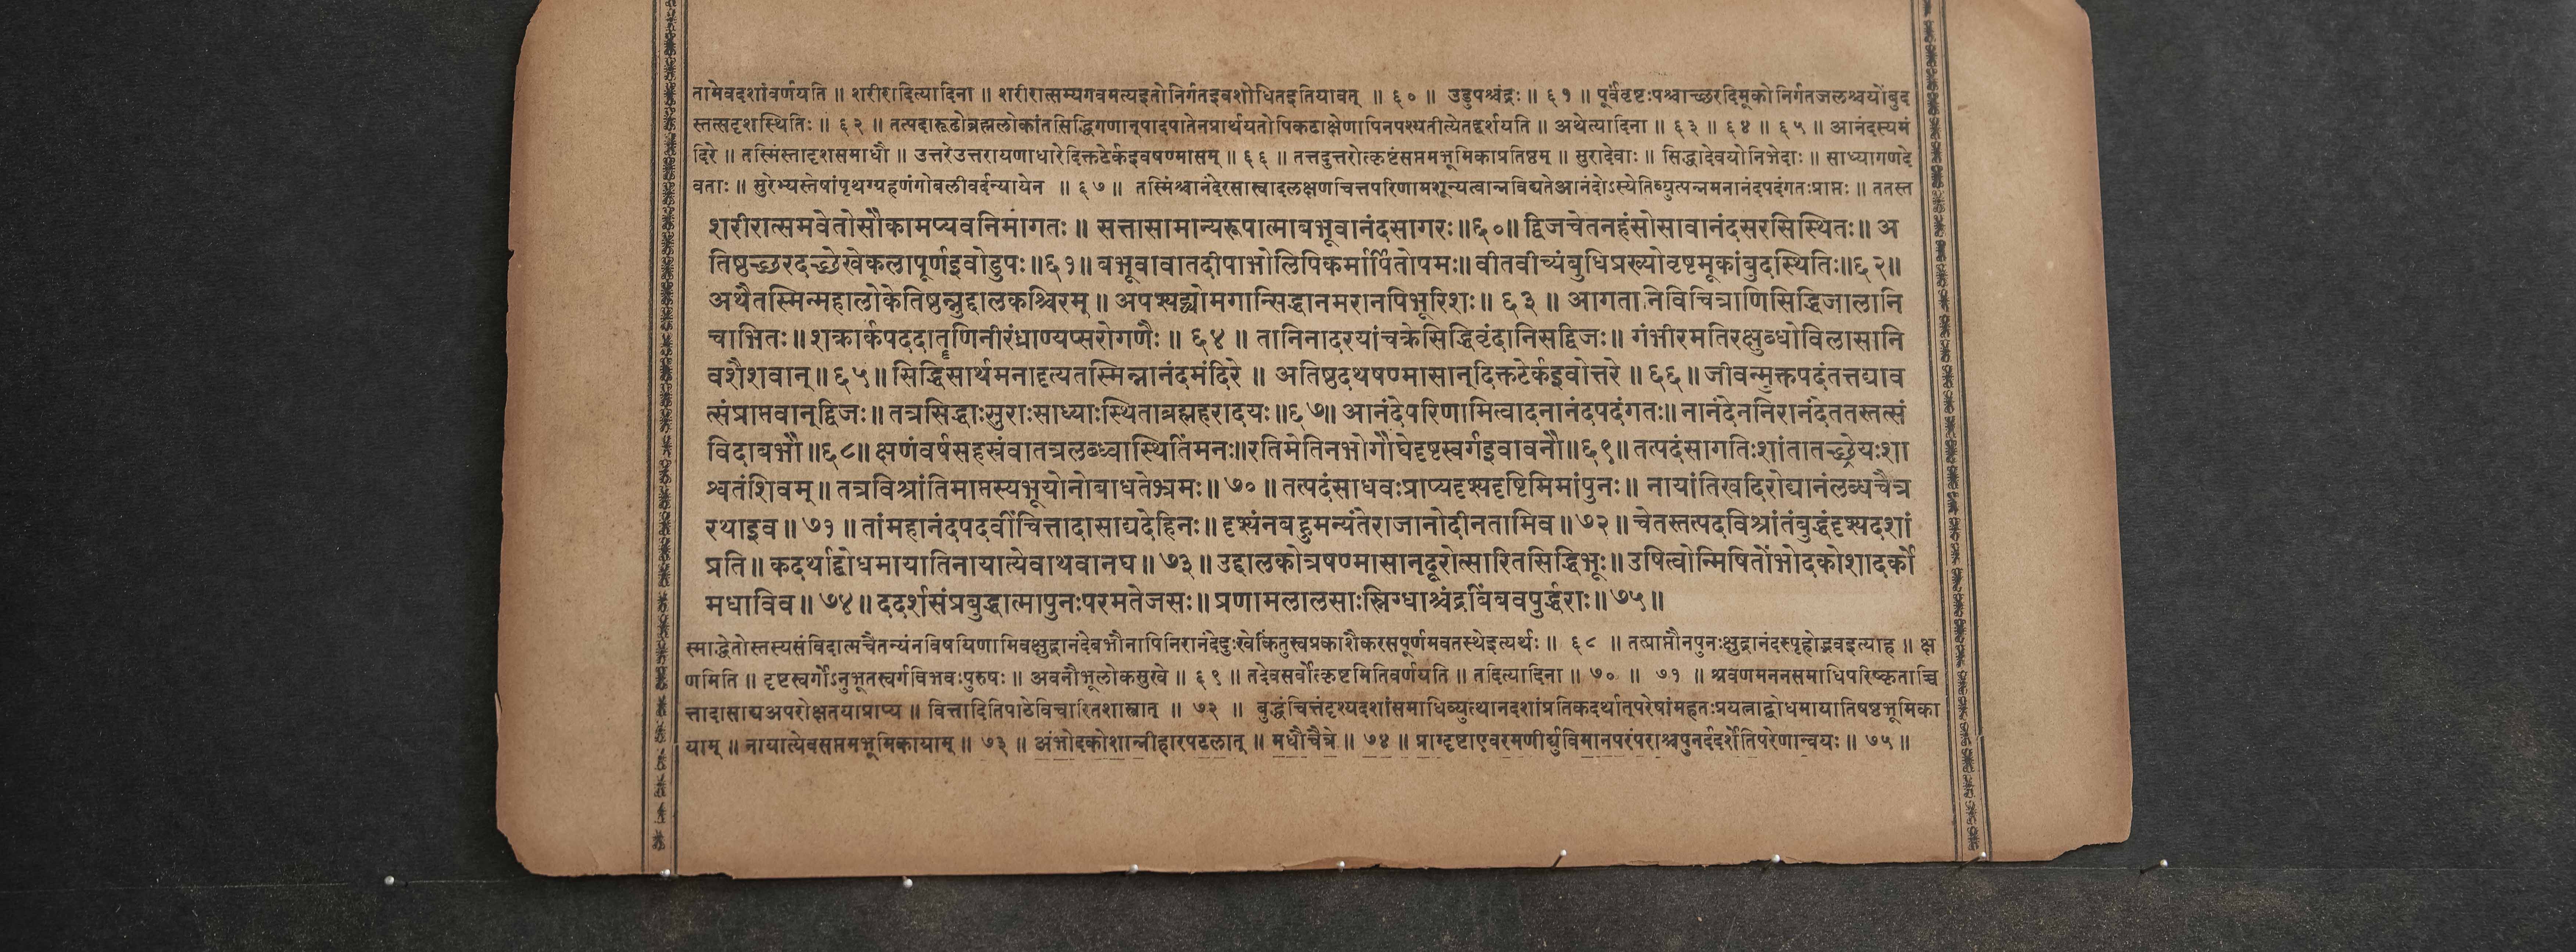 तामेवदशांवर्णयति ॥ शरीरादित्यादिना ॥ शरीरात्सम्यगवमत्यइतोनिर्गतइवशोधितइतियावत् ॥ ६० ॥ उडुपश्चंद्रः ॥ ६१ ॥ पूर्वंवृष्टःपश्चाच्छरदिमूकोनिर्गतजलश्चयोंबुद
स्तत्सदृशस्थितिः ॥ ६२ ॥ तत्पदारूढोब्रह्मलोकांतसिद्धिगणान्पादपातेनप्रार्थयतोपिकटाक्षेणापिनपश्यतीत्येतद्दर्शयति ॥ अथेत्यादिना ॥ ६३ ॥ ६४ ॥ ६५ ॥ आनंदस्यमं
दिरे ॥ तस्मिंस्तादृशसमाधौ ॥ उत्तरेउत्तरायणाधारेदिक्तटेर्कइवषण्मासम् ॥ ६६ ॥ तत्तदुत्तरोत्कृष्टंसप्तमभूमिकाप्रतिष्ठम् ॥ सुरादेवाः ॥ सिद्धादेवयोनिभेदाः ॥ साध्यागणदे
वताः ॥ सुरेभ्यस्तेषांपृथग्ग्रहणंगोबलीवर्दन्यायेन ॥ ६७ ॥ तस्मिंश्चानंदेरसास्वादलक्षणचित्तपरिणामशून्यत्वान्नविद्यतेआनंदोऽस्येतिव्युत्पन्नमनानंदपदंगतःप्राप्तः ॥ ततस्त
शरीरात्समवेतोसौकामप्यवनिमागतः ॥ सत्तासामान्यरूपात्माबभूवानंदसागरः ॥६०॥ द्विजचेतनहंसोसावानंदसरसिस्थितः ॥ अ
तिष्ठच्छरदच्छेखेकलापूर्णइवोडुपः ॥६१॥ बभूवावातदीपाभोलिपिकर्मार्पितोपमः ॥ वीतवीच्यंबुधिप्रख्योवृष्टमूकांबुदस्थितिः ॥६२॥
अथैतस्मिन्महालोकेतिष्ठन्नुद्दालकश्चिरम् ॥ अपश्यद्व्योमगान्सिद्धानमरानपिभूरिशः ॥ ६३ ॥ आगतानिविचित्राणिसिद्धिजालानि
चाभितः ॥ शक्रार्कपददातॄणिनीरंध्राण्यप्सरोगणैः ॥ ६४ ॥ तानिनादरयांचक्रेसिद्धिवृंदानिसद्विजः ॥ गंभीरमतिरक्षुब्धोविलासानि
वशैशवान् ॥ ६५ ॥ सिद्धिसार्थमनादृत्यतस्मिन्नानंदमंदिरे ॥ अतिष्ठदथषण्मासान्दिक्तटेर्कइवोत्तरे ॥ ६६ ॥ जीवन्मुक्तपदंतत्तद्याव
त्संप्राप्तवान्द्विजः ॥ तत्रसिद्धाःसुराःसाध्याःस्थिताब्रह्महरादयः ॥६७॥ आनंदेपरिणामित्वादनानंदपदंगतः ॥ नानंदेननिरानंदेततस्तत्सं
विदाबभौ ॥६८॥ क्षणंवर्षसहस्रंवातत्रलब्ध्वास्थितिंमनः ॥ रतिमेतिनभोगौघेदृष्टस्वर्गइवावनौ ॥६९॥ तत्पदंसागतिःशांतातच्छ्रेयःशा
श्वतंशिवम् ॥ तत्रविश्रांतिमाप्तस्यभूयोनोबाधतेभ्रमः ॥ ७० ॥ तत्पदंसाधवःप्राप्यदृश्यदृष्टिमिमांपुनः ॥ नायांतिखदिरोद्यानंलब्धचैत्र
रथाइव ॥ ७१ ॥ तांमहानंदपदवींचित्तादासाद्यदेहिनः ॥ दृश्यंनबहुमन्यंतेराजानोदीनतामिव ॥ ७२ ॥ चेतस्तत्पदविश्रांतंबुद्धंदृश्यदशां
प्रति ॥ कदर्थाद्बोधमायातिनायात्येवाथवानघ ॥ ७३ ॥ उद्दालकोत्रषण्मासान्दूरोत्सारितसिद्धिभूः ॥ उषित्वोन्मिषितोंभोदकोशादर्को
मधाविव ॥ ७४ ॥ ददर्शसंप्रबुद्धात्मापुनःपरमतेजसः ॥ प्रणामलालसाःस्निग्धाश्चंद्रबिंबवपुर्द्धराः ॥ ७५ ॥
स्माद्धेतोस्तस्यसंविदात्मचैतन्यंनविषयिणामिवक्षुद्रानंदेबभौनापिनिरानंदेदुःखेकिंतुस्वप्रकाशैकरसपूर्णमवतस्थेइत्यर्थः ॥ ६८ ॥ तत्प्राप्तौनपुनःक्षुद्रानंदस्पृहोद्भवइत्याह ॥ क्ष
णमिति ॥ दृष्टस्वर्गोऽनुभूतस्वर्गविभवःपुरुषः ॥ अवनौभूलोकसुखे ॥ ६९ ॥ तदेवसर्वोत्कृष्टमितिवर्णयति ॥ तदित्यादिना ॥ ७० ॥ ७१ ॥ श्रवणमननसमाधिपरिष्कृताच्चि
त्तादासाद्यअपरोक्षतयाप्राप्य ॥ वित्तादितिपाठेविचारितशास्त्रात् ॥ ७२ ॥ बुद्धंचित्तंदृश्यदशांसमाधिव्युत्थानदशांप्रतिकदर्थात्परेषांमहतःप्रयत्नाद्बोधमायातिषष्ठभूमिका
याम् ॥ नायात्येवसप्तमभूमिकायाम् ॥ ७३ ॥ अंभोदकोशान्नीहारपटलात् ॥ मधौचैत्रे ॥ ७४ ॥ प्राग्दृष्टाएवरमणीर्द्युविमानपरंपराश्चपुनर्ददर्शेतिपरेणान्वयः ॥ ७५ ॥